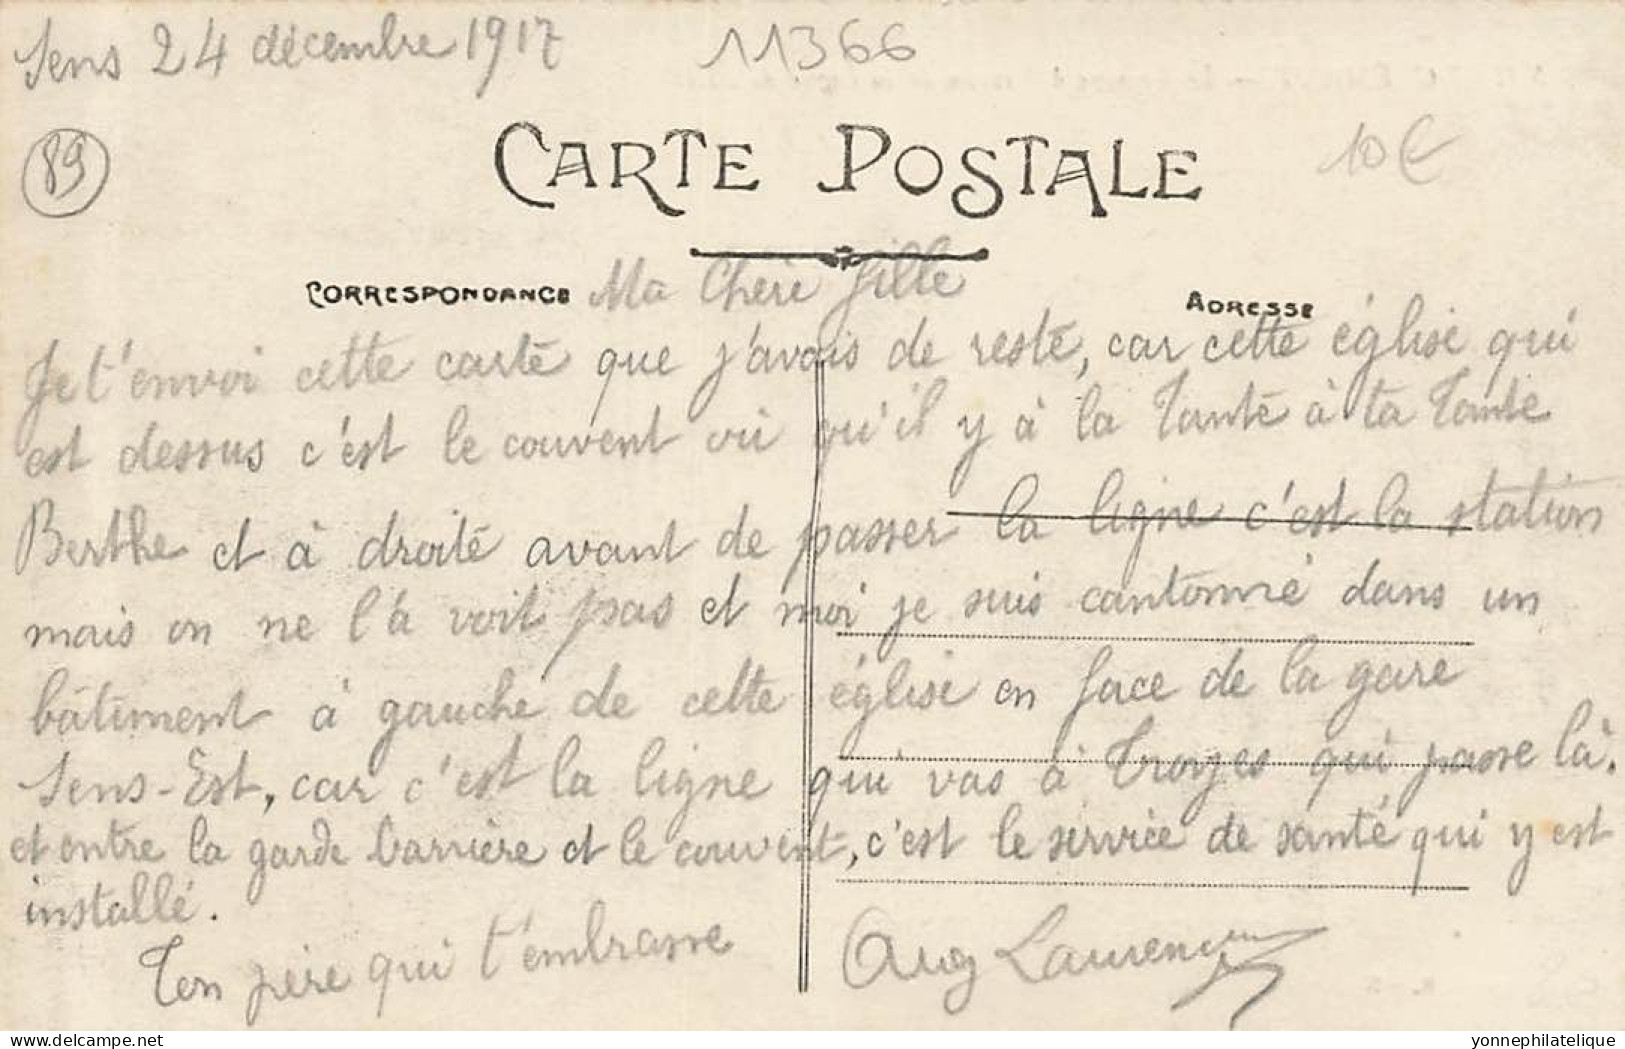 Sens 24 décembre 1917
11366
89
CARTE POSTALE
10€
CORRESPONDANCE
Ma Chère fille
ADRESSE
Je t'envoi cette carte que j'avais de resté, car cette église qui
est dessus c'est le couvent où qu'il y à la Tante à ta Tante
Berthe et à droite avant de passer la ligne c'est la station
mais on ne l'à voit pas et moi je suis cantonné dans un
bâtiment à gauche de cette église en face de la gare
Sens-Est, car c'est la ligne qui vas à Troyes qui passe là.
et entre la garde barrière et le couvent, c'est le service de santé qui y est
installé.
Ton père qui t'embrasse
Aug
delcampe.net
yonnephilatelique